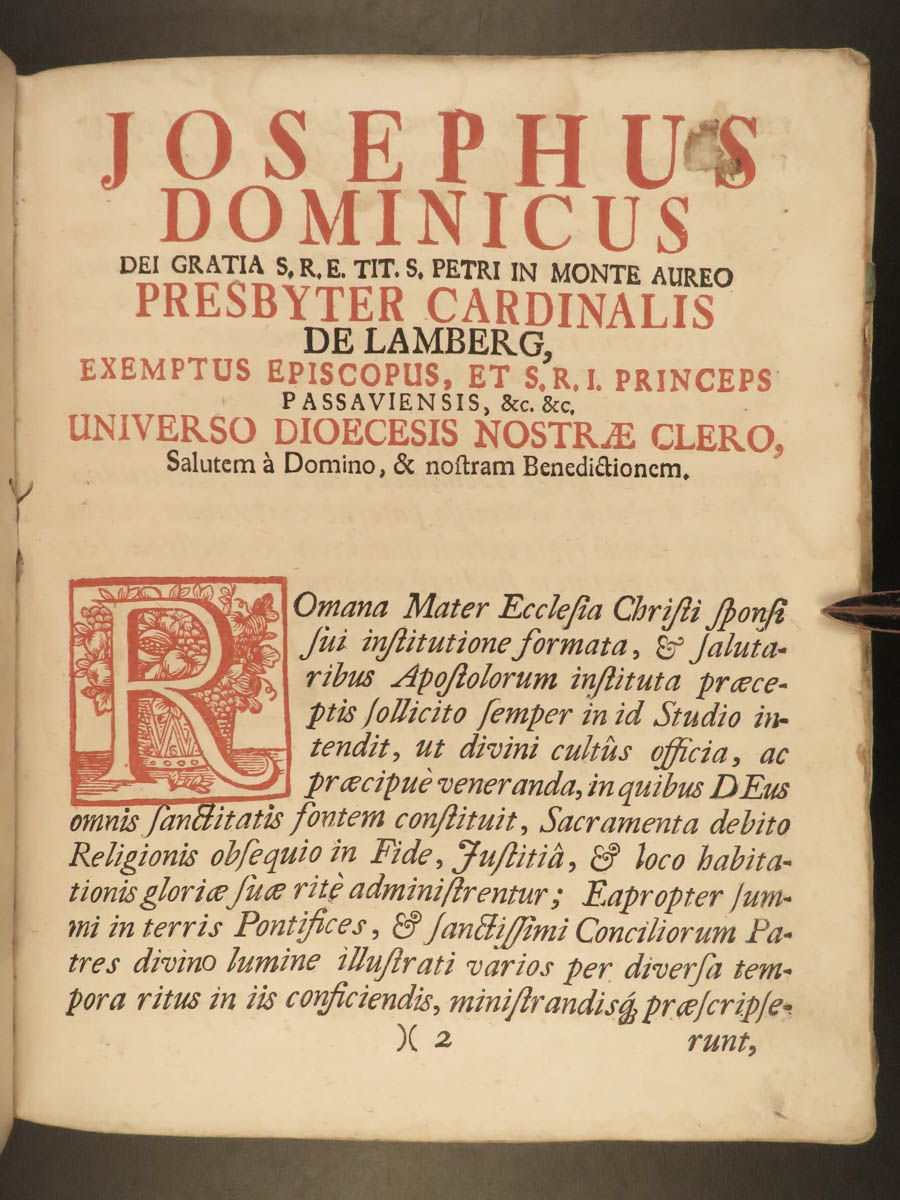 JOSEPHUS
DOMINICUS
DEI GRATIA S. R. E. TIT. S. PETRI IN MONTE AUREO
PRESBYTER CARDINALIS
DE LAMBERG,
EXEMPTUS EPISCOPUS, ET S. R. I. PRINCEPS
PASSAVIENSIS, &c. &c.
UNIVERSO DIOECESIS NOSTRÆ CLERO,
Salutem à Domino, & noſtram Benedictionem.
ROmana Mater Eccleſia Chriſti ſponſi
ſui inſtitutione formata, & ſaluta-
ribus Apoſtolorum inſtituta præce-
ptis ſollicito ſemper in id Studio in-
tendit, ut divini cultûs officia, ac
præcipuè veneranda, in quibus DEus
omnis ſanctitatis fontem conſtituit, Sacramenta debito
Religionis obſequio in Fide, Juſtitiâ, & loco habita-
tionis gloriæ ſuæ ritè adminiſtrentur; Eapropter ſum-
mi in terris Pontifices, & ſanctiſſimi Conciliorum Pa-
tres divino lumine illuſtrati varios per diverſa tem-
pora ritus in iis conficiendis, miniſtrandisq́; præſcripſe-
)( 2 runt,